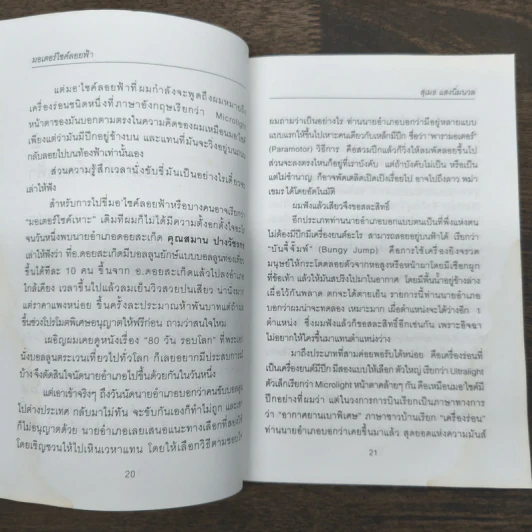 มอเตอร์ไซค์ลอยฟ้า
แต่มอ'ไซค์ลอยฟ้าที่ผมกำลังจะพูดถึงผมหมายถึง
เครื่องร่อนชนิดหนึ่งที่ภาษาอังกฤษเรียกว่า Microlight
หน้าตาของมันบอกตามตรงในความคิดของผมเหมือนมอ'ไซค์
เพียงแต่ว่ามันมีปีกอยู่ข้างบน และแทนที่มันจะวิ่งอยู่บนถนน
กลับลอยไปบนท้องฟ้าเท่านั้นเอง
ส่วนความรู้สึกเวลานั่งขับขี่มันเป็นอย่างไรเดี๋ยวจะ
เล่าให้ฟัง
สำหรับการไปขี่มอ'ไซค์ลอยฟ้าหรือบางคนอาจเรียก
"มอเตอร์ไซค์เหาะ" เดิมทีผมก็ไม่ได้มีความตั้งอกตั้งใจ
จนวันหนึ่งพบนายอำเภอดอยสะเก็ด คุณสมาน
เล่าให้ฟังว่า ที่อ.ดอยสะเก็ดมีบอลลูนยักษ์แบบนางรอง
ขึ้นได้ทีละ 10 คน ขึ้นจาก อ.ดอยสะเก็ดแล้วไปลงอำเภอ
ใกล้เคียง เวลาขึ้นไปแล้วลมเย็นวิวสวยปนเสียว น่านั่ง
แต่ราคาแพงหน่อย ขึ้นครั้งละประมาณห้าพันบาทแต่ถ้า
ขึ้นช่วงโปรโมตพิเศษอนุญาตให้ฟรีก่อน ถามว่าสนใจไหม
เผอิญผมเคยดูหนังเรื่อง "80 วัน รอบโลก" ที่พระเอก
นั่งบอลลูนตระเวนเที่ยวไปทั่วโลก ก็เลยอยากมีประสบการณ์
บ้างจึงตัดสินใจนัดนายอำเภอไปขึ้นด้วยกันในวันหนึ่ง
แต่เอาเข้าจริงๆ ถึงวันนัดนายอำเภอบอกว่าคนขับบอลลูน
ไปต่างประเทศ กลับมาไม่ทัน จะขับกันเองก็ทำไม่ถูก
ก็ไม่อนุญาตด้วย นายอำเภอเลยเสนอแนะทางเลือกที่สอง
โดยเชิญชวนให้ไปเหินเวหาแทน โดยให้เลือกวิธีตามชอบใจ
20
สุเมธ แสงนิ่มนวล
ผมถามว่าเป็นอย่างไร ท่านนายอำเภอบอกว่ามีอยู่หลายแบบ
แบบแรกให้ขึ้นไปเหาะคนเดียวกับเหล็กมีปีก ชื่อว่า "พารามอเตอร์"
(Paramotor) วิธีการ คือสวมปีกแล้ววิ่งให้ลมพัดลอยขึ้นไป
ส่วนจะลงตรงไหนก็อยู่ที่เราบังคับ แต่ถ้าบังคับไม่เป็น หรือเป็น
แต่ไม่ชำนาญ ก็อาจพัดเตลิดเปิดเปิงเรื่อยไป อาจไปถึงลาว พม่า
เขมร ได้โดยอัตโนมัติ
ผมฟังแล้วเสียวจึงขอสละสิทธิ์
อีกประเภทท่านนายอำเภอบอกแบบตนเป็นที่พึ่งแห่งตน
ไม่ต้องมีปีกมีเครื่องยนต์อะไร สามารถลอยอยู่บนฟ้าได้ เรียกว่า
"บันจี้จั๊มพ์" (Bungy Jump) คือการใช้เครื่องยิงจรวด
มนุษย์ให้กระโดดลอยตัวจากหอสูงหรือหน้าผาโดยมีเชือกผูก
ที่ข้อเท้า แล้วให้มันสปริงไปมาในอากาศ โดยมีพื้นน้ำอยู่ข้างล่าง
เผื่อไว้กันพลาด ตกจะได้ตายเย็น รายการนี้ท่านนายอำเภอ
บอกว่าผมน่าจะทดลอง เหมาะมาก เมื่อตำแหน่งจะได้ว่างอีก 1
ตำแหน่ง ซึ่งผมฟังแล้วก็ขอสละสิทธิ์อีกเช่นกัน เพราะอิจฉา
ไม่อยากให้ใครขึ้นมาแทนตำแหน่งว่าง
มาถึงประเภทที่สามค่อยพอรับได้หน่อย คือเครื่องร่อนที่
เป็นเครื่องยนต์มีปีก มีสองแบบให้เลือก ตัวใหญ่ เรียกว่า Ultralight
ตัวเล็กเรียกว่า Microlight หน้าตาคล้ายๆ กัน คือเหมือนมอ'ไซค์มี
ปีกอย่างที่ผมว่า แต่ในวงการการบินเรียกเป็นภาษาทางการ
ว่า "อากาศยานเบาพิเศษ" ภาษาชาวบ้านเรียก "เครื่องร่อน"
ท่านนายอำเภอบอกว่าเคยขึ้นมาแล้ว สุดยอดแห่งความมันส์
21